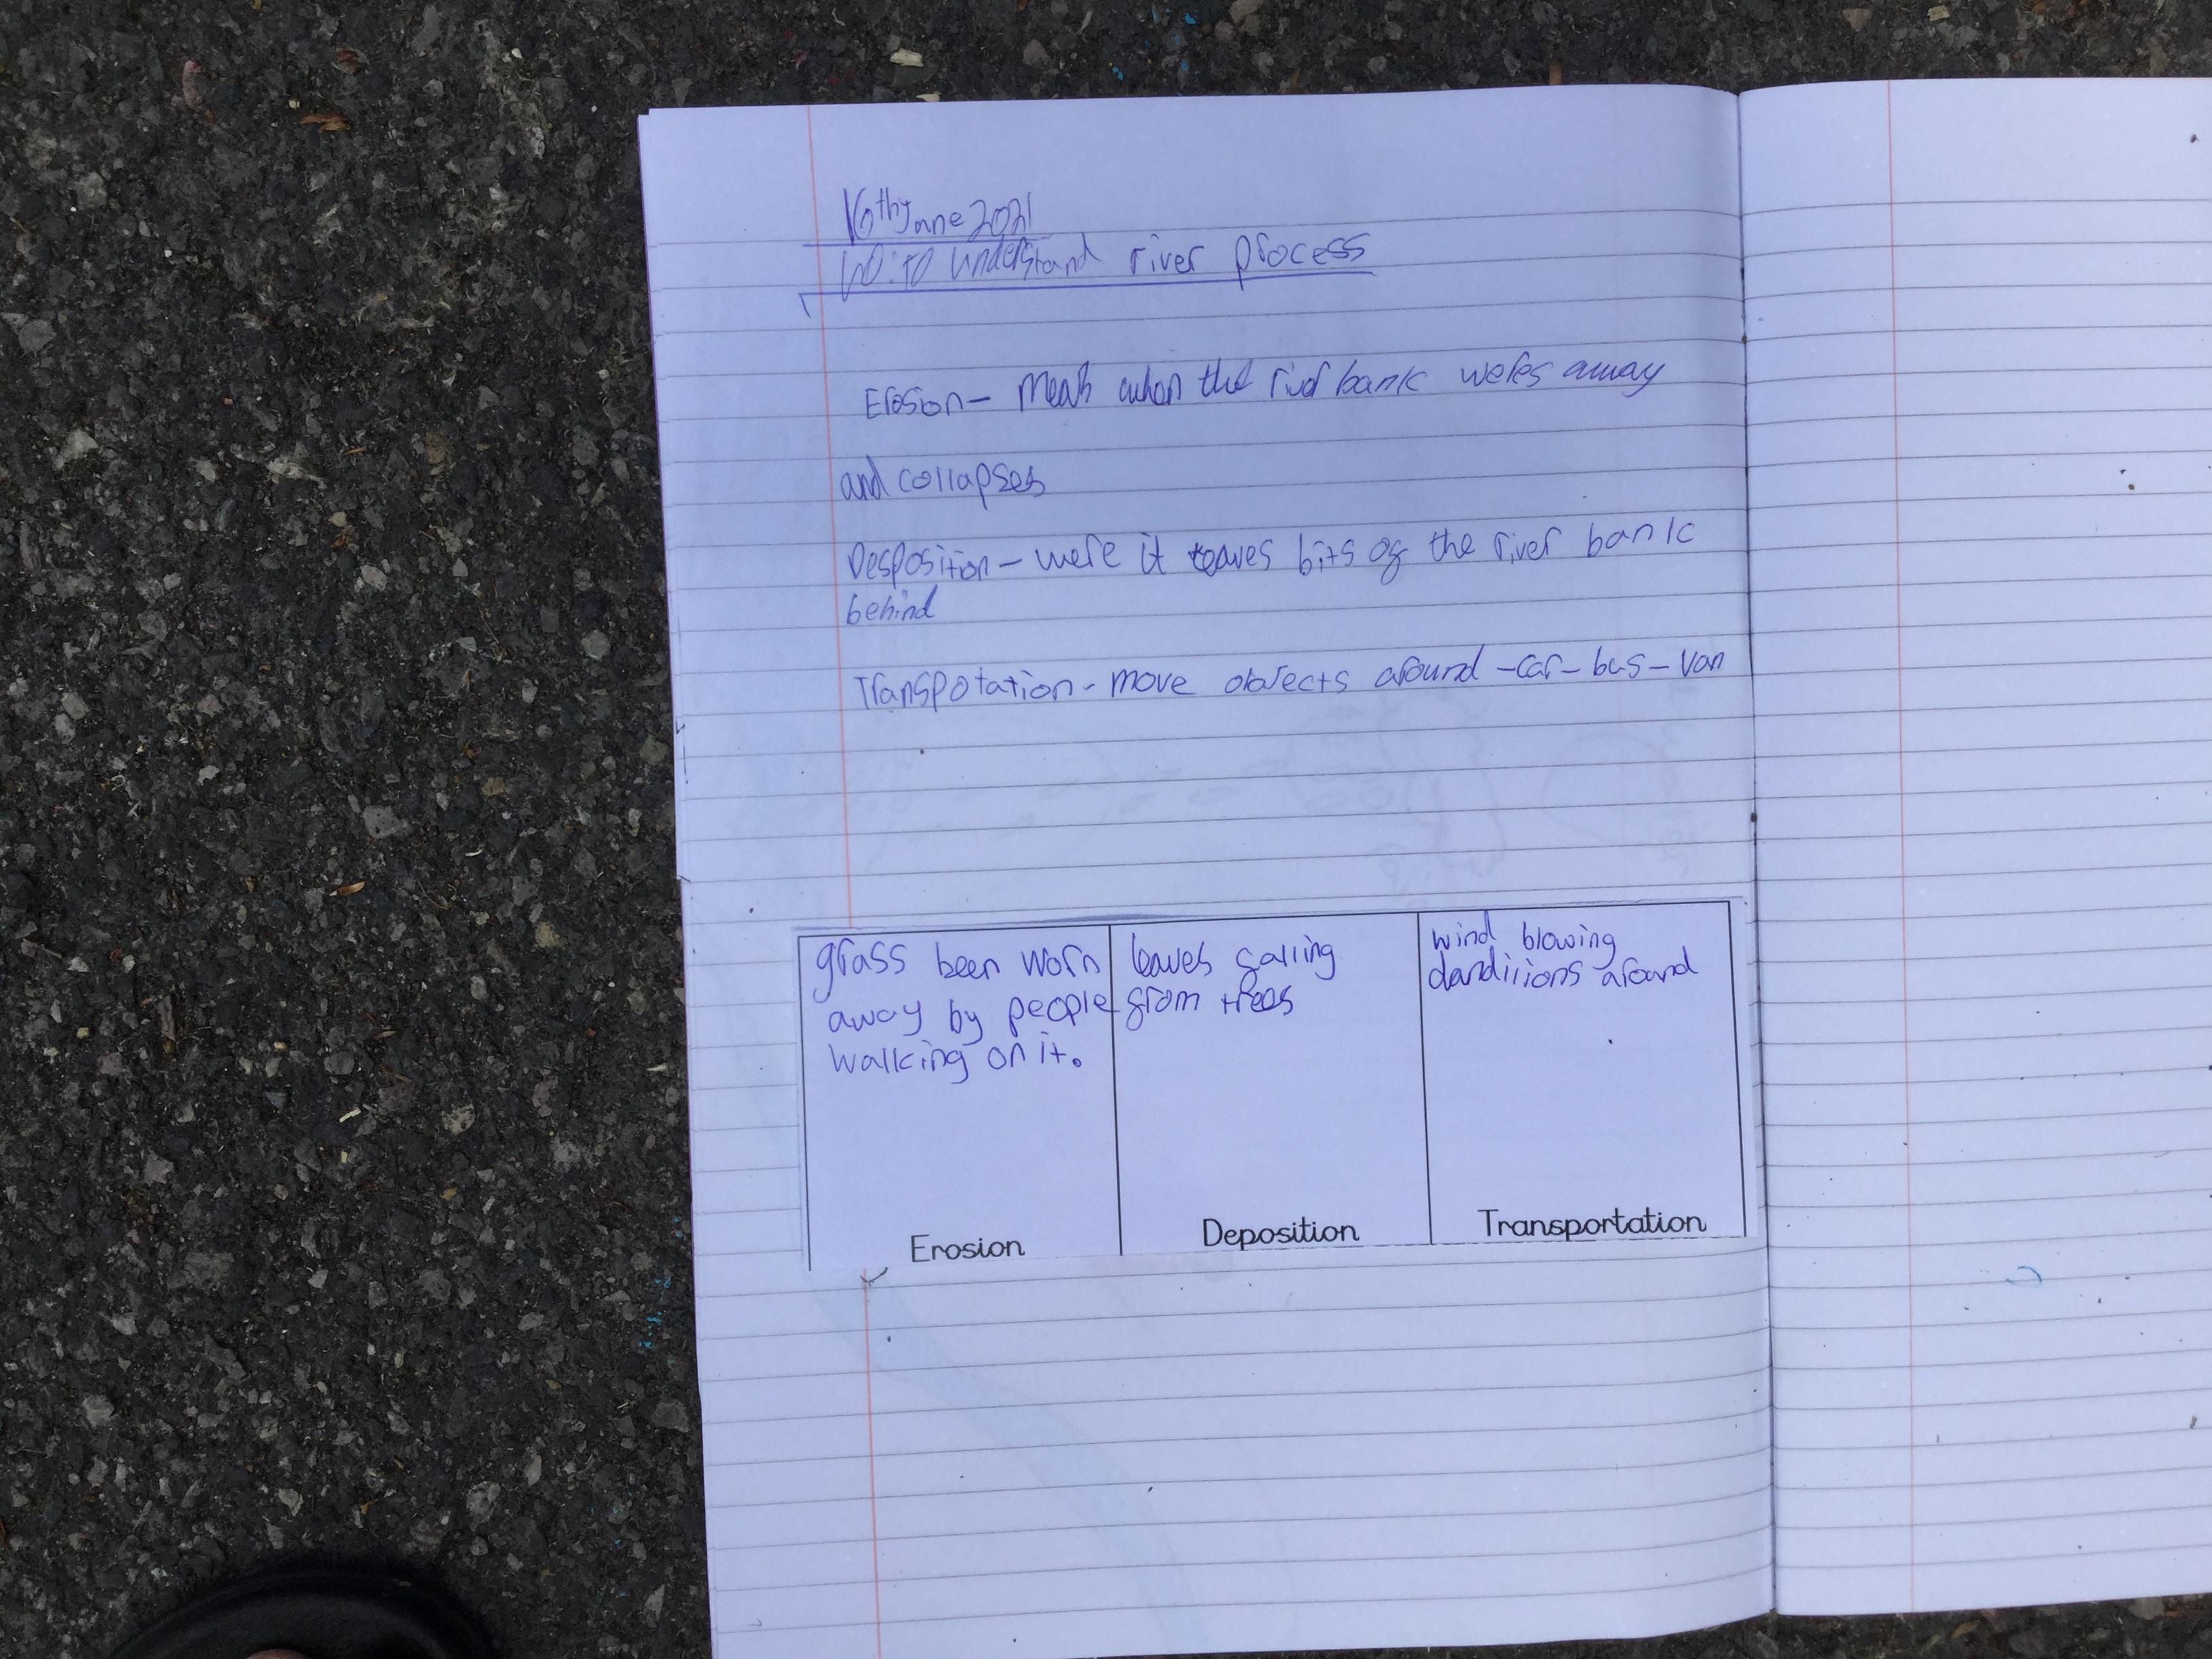 16th June 2021
LO: to understand river process
Erosion - Meah when the river bank weres away
and collapses
Desposition - were it leaves bits of the river bank
behind
Transpotation - move objects around - car - bus - van
grass been worn
away by people
walking on it.
Erosion
leaves falling
from trees
Deposition
wind blowing
dandilions around
Transportation